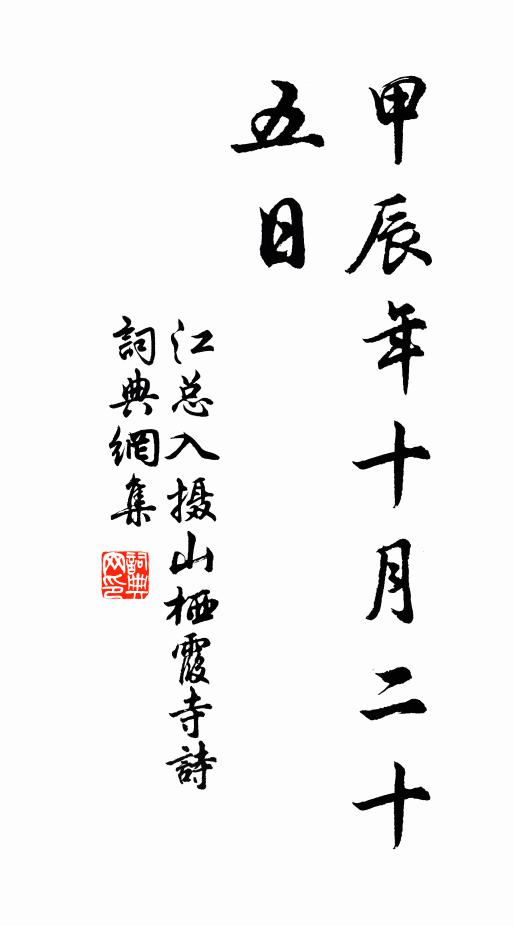 甲辰年十月二十
五日
江总入摄山栖霞寺詩
詞典網集
詞典網印